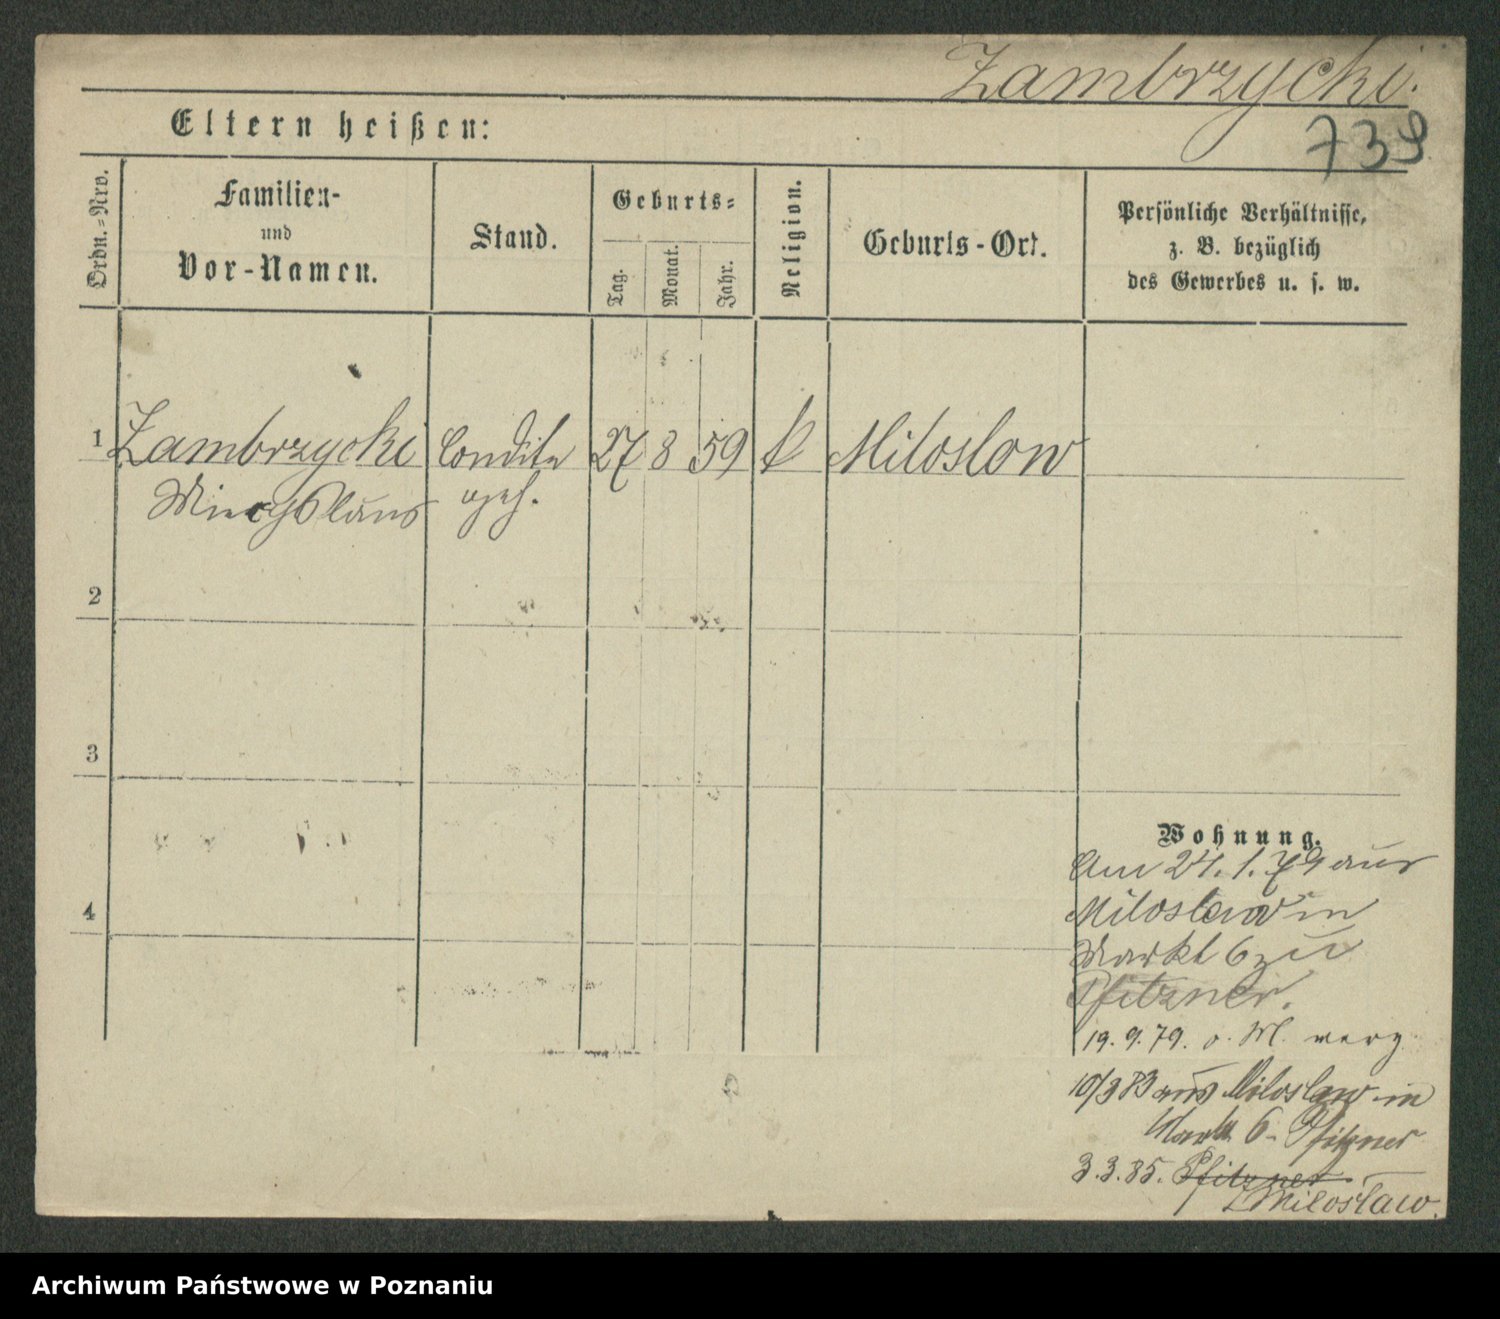 Zambrzycki.
739
Eltern heißen:
Ordn.-Nro.
Familien-
und
Vor-Namen.
Stand.
Geburts-
Tag.
Monat.
Jahr.
Religion.
Geburts-Ort.
Persönliche Verhältnisse,
z. B. bezüglich
des Gewerbes u. s. w.
1 Zambrzycki Condito 27 8 59 k Miloslow
geh.
2
3
4
Wohnung.
Am 24.1.79 aus
Miloslaw in
Markt 6 zu
Pfitzner.
19.9.79. n. M. verz
10/3 83 aus Miloslaw in
Markt 6 - Pfitzner
3.3.85. Pfitzner.
Miloslaw.
Archiwum Państwowe w Poznaniu